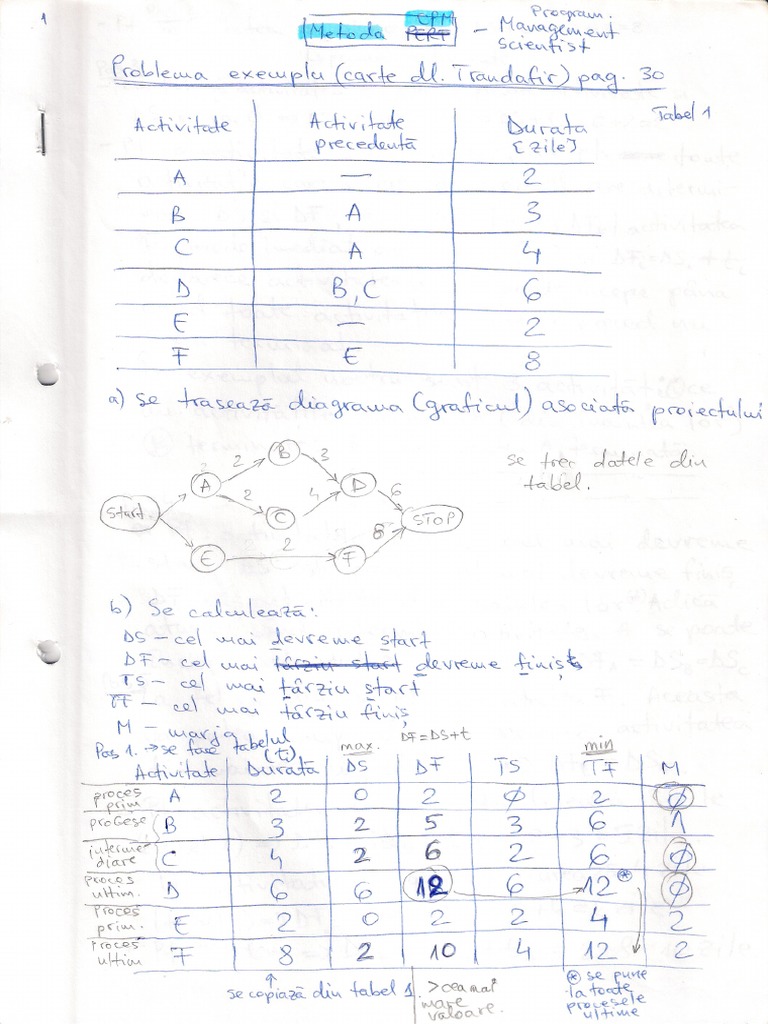 1
CPM
Metoda PERT
– Program.
Management
Scientist
Problema exemplu (carte dl. Trandafir) pag. 30
Tabel 1
Activitate Activitate precedentă Durata [zile]
A — 2
B A 3
C A 4
D B,C 6
E — 2
F E 8
a) Se trasează diagrama (graficul) asociată proiectului
se trec datele din
tabel.
Start A 2 B 3 D 6 STOP
2 C 4
E 2 F 8
b) Se calculează:
DS – cel mai devreme start
DF – cel mai târziu start devreme finiș
TS – cel mai târziu start
TF – cel mai târziu finiș
M – marja
Pas 1. → se face tabelul
(ti) max. DF=DS+t min
Activitate Durată DS DF TS TF M
proces prim A 2 0 2 0 2 0
procese B 3 2 5 3 6 1
intermediare C 4 2 6 2 6 0
proces ultim. D 6 6 12 6 12 * 0
proces prim. E 2 0 2 2 4 2
proces ultim F 8 2 10 4 12 2
se copiază din tabel 1.
> cea mai
mare
valoare.
* se pune
la toate
procesele
ultime